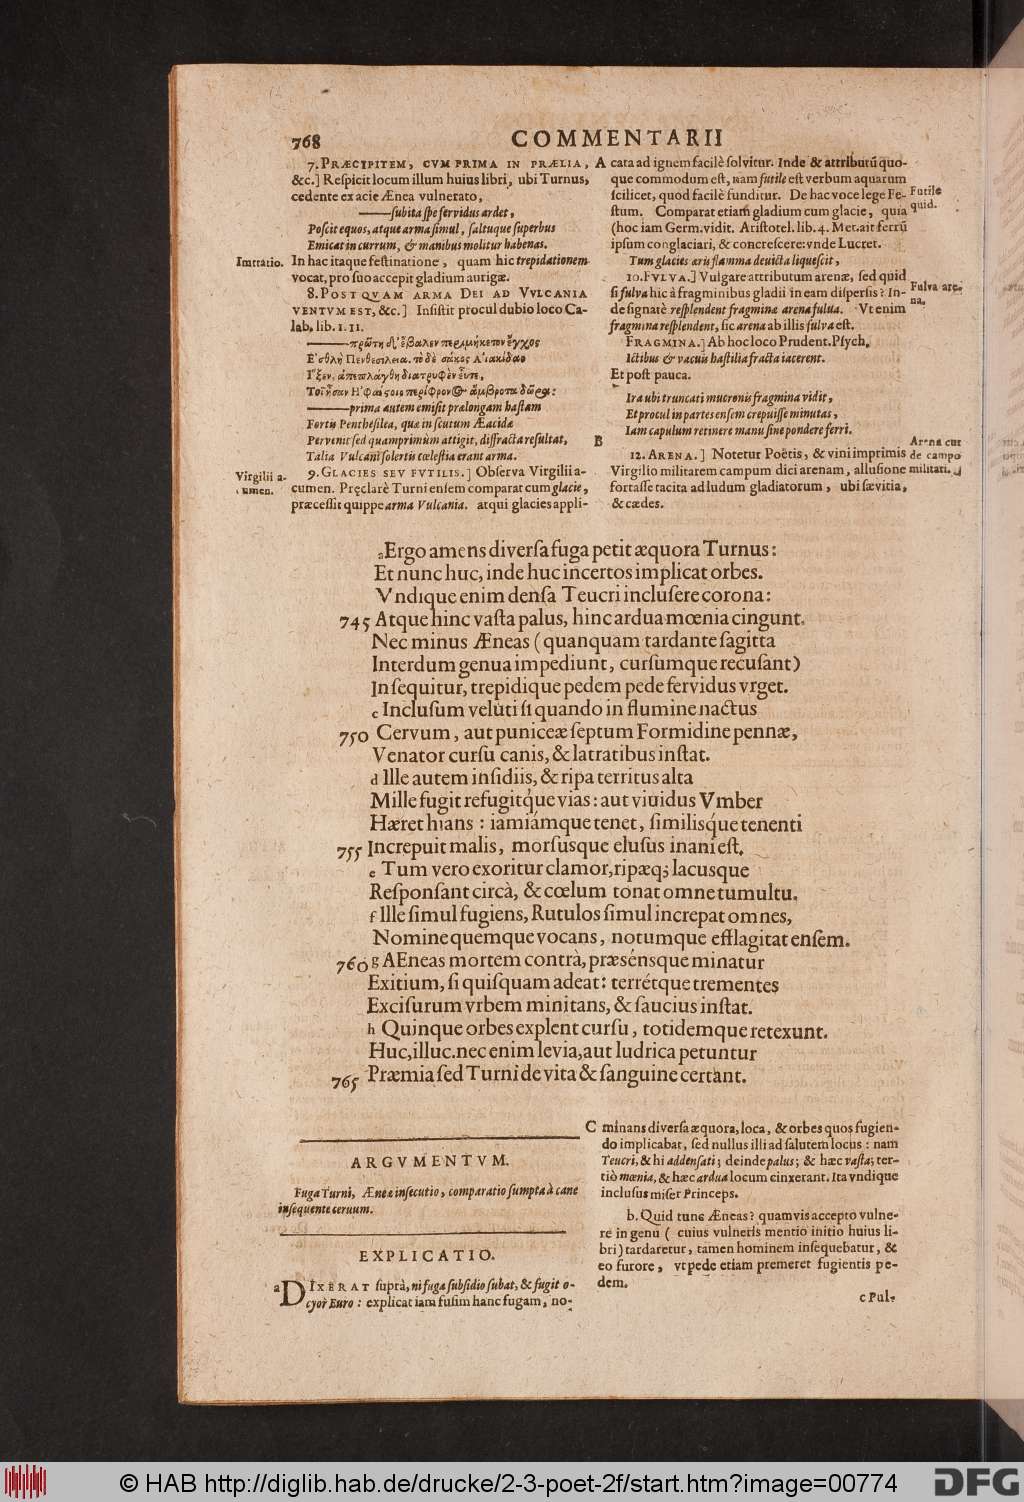 768
COMMENTARII
7. PRÆCIPITEM, CVM PRIMA IN PRÆLIA,
&c.] Reſpicit locum illum huius libri, ubi Turnus,
cedente ex acie Ænea vulnerato,
——ſubita ſpe fervidus ardet,
Poſcit equos, atque arma ſimul, ſaltuque ſuperbus
Emicat in currum, & manibus molitur habenas.
Imitatio.
In hac itaque feſtinatione, quam hic trepidationem
vocat, pro ſuo accepit gladium aurigæ.
8. POSTQVAM ARMA DEI AD VVLCANIA
VENTVM EST, &c.] Inſiſtit procul dubio loco Ca-
lab. lib. 1. 11.
——πρώτη δ' ἔβαλεν περιμήκετον ἔγχος
Ἐσθλὴ Πενθεσίλεια. τὸ δὲ σάκος Αἰακίδαο
Ἷξεν, ἀπεπλάγχθη διατρυφὲν εὖτε,
Τοῖ' ἦσαν Ἡφαίστοιο περίφρονος ἄμβροτα δῶρα:
——prima autem emiſit prælongam haſtam
Fortis Pentheſilea, quæ in ſcutum Æacidæ
Pervenit ſed quamprimùm attigit, diffracta reſultat,
Talia Vulcani ſolertis cœleſtia erant arma.
Virgilii a-
cumen.
9. GLACIES SEV FVTILIS.] Obſerva Virgilii a-
cumen. Pręclarè Turni enſem comparat cum glacie,
præceſſit quippe arma Vulcania. atqui glacies appli-
A cata ad ignem facilè ſolvitur. Inde & attributũ quo-
que commodum eſt, nam futile eſt verbum aquarum
ſcilicet, quod facilè funditur. De hac voce lege Fe-
Futile
quid.
ſtum. Comparat etiam gladium cum glacie, quia
(hoc iam Germ. vidit. Ariſtotel. lib. 4. Met. ait ferrũ
ipſum conglaciari, & concreſcere: vnde Lucret.
Tum glacies æris flamma devicta liqueſcit,
10. FVLVA.] Vulgare attributum arenæ, ſed quid
Fulva are-
na.
ſi fulva hic à fragminibus gladii in eam diſperſis? In-
de ſignatè reſplendent fragmina arena fulua. Vt enim
fragmina reſplendent, ſic arena ab illis fulva eſt.
FRAGMINA.] Ab hoc loco Prudent. Pſych.
Ictibus & vacuis haſtilia fracta iacerent.
Et poſt pauca.
Ira ubi truncati mucronis fragmina vidit,
Et procul in partes enſem crepuiſſe minutas,
Iam capulum retinere manu ſine pondere ferri.
B
Arena cur
de campo
militari.
12. ARENA.] Notetur Poëtis, & vini imprimis
Virgilio militarem campum dici arenam, alluſione
fortaſſe tacita ad ludum gladiatorum, ubi ſævitia,
& cædes.
a Ergo amens diverſa fuga petit æquora Turnus:
Et nunc huc, inde huc incertos implicat orbes.
Vndique enim denſa Teucri incluſere corona:
745 Atque hinc vaſta palus, hinc ardua mœnia cingunt.
Nec minus Æneas (quanquam tardante ſagitta
Interdum genua impediunt, curſumque recuſant)
Inſequitur, trepidique pedem pede fervidus vrget.
c Incluſum velùti ſi quando in flumine nactus
750 Cervum, aut puniceæ ſeptum Formidine pennæ,
Venator curſu canis, & latratibus inſtat.
d Ille autem inſidiis, & ripa territus alta
Mille fugit refugitq́ue vias: aut viuidus Vmber
Hæret hians: iamiámque tenet, ſimilisq́ue tenenti
755 Increpuit malis, morſusque eluſus inani eſt.
e Tum vero exoritur clamor, ripæq; lacusque
Reſponſant circà, & cœlum tonat omne tumultu.
f Ille ſimul fugiens, Rutulos ſimul increpat omnes,
Nomine quemque vocans, notumque efflagitat enſem.
760 g AEneas mortem contrà, præsénsque minatur
Exitium, ſi quiſquam adeat: terrétque trementes
Exciſurum vrbem minitans, & ſaucius inſtat.
h Quinque orbes explent curſu, totidemque retexunt.
Huc, illuc. nec enim levia, aut ludrica petuntur
765 Præmia ſed Turni de vita & ſanguine certant.
ARGVMENTVM.
Fuga Turni, Æneæ inſecutio, comparatio ſumpta à cane
inſequente ceruum.
EXPLICATIO.
a DIXERAT ſuprà, ni fuga ſubſidio ſubat, & fugit o-
cyor Euro: explicat iam fuſim hanc fugam, no-
C minans diverſa æquora, loca, & orbes quos fugien-
do implicabat, ſed nullus illi ad ſalutem locus: nam
Teucri, & hi addenſati; deinde palus; & hæc vaſta; ter-
tiò mœnia, & hæc ardua locum cinxerant. Ita vndique
incluſus miſer Princeps.
b. Quid tunc Æneas? quamvis accepto vulne-
re in genu (cuius vulneris mentio initio huius li-
bri) tardaretur, tamen hominem inſequebatur, &
eo furore, vt pede etiam premeret fugientis pe-
dem.
c Pul-
© HAB http://diglib.hab.de/drucke/2-3-poet-2f/start.htm?image=00774
DFG